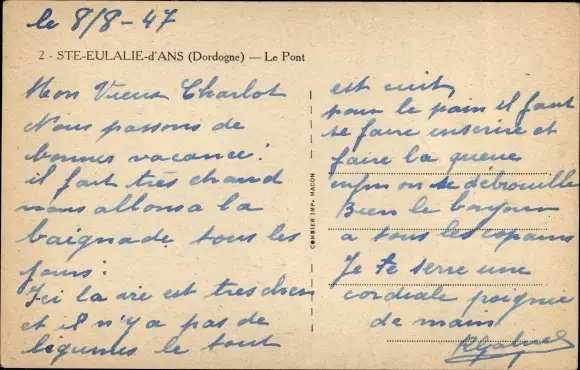 le 8/8-47
2 - STE-EULALIE-d'ANS (Dordogne) — Le Pont
Mon Vieux Charlot
Nous passons de
bonnes vacance.
il fait très chaud
nous allons a la
baignade tous les
jours.
Ici la vie est tres cher
et il n'y a pas de
legumes le tout
COMBIER IMP. MACON
est cuit,
pour le pain il faut
se faire inscrire et
faire la queue
enfin on se débrouille
Bien le bonjour
a tous les copains
Je te serre une
cordiale poignée
de main